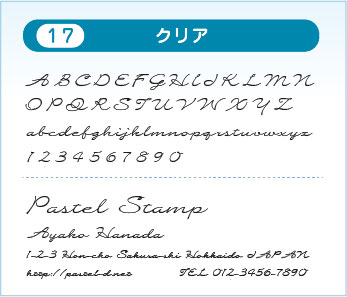 17 クリア
A B C D E F G H I J K L M N
O P Q R S T U V W X Y Z
abcdefghijklmnopqrstuvwxyz
1 2 3 4 5 6 7 8 9 0
Pastel Stamp
Ayako Hanada
1-2-3 Hon-cho Sakura-shi Hokkaido JAPAN
http://pastel-d.net TEL 012-3456-7890